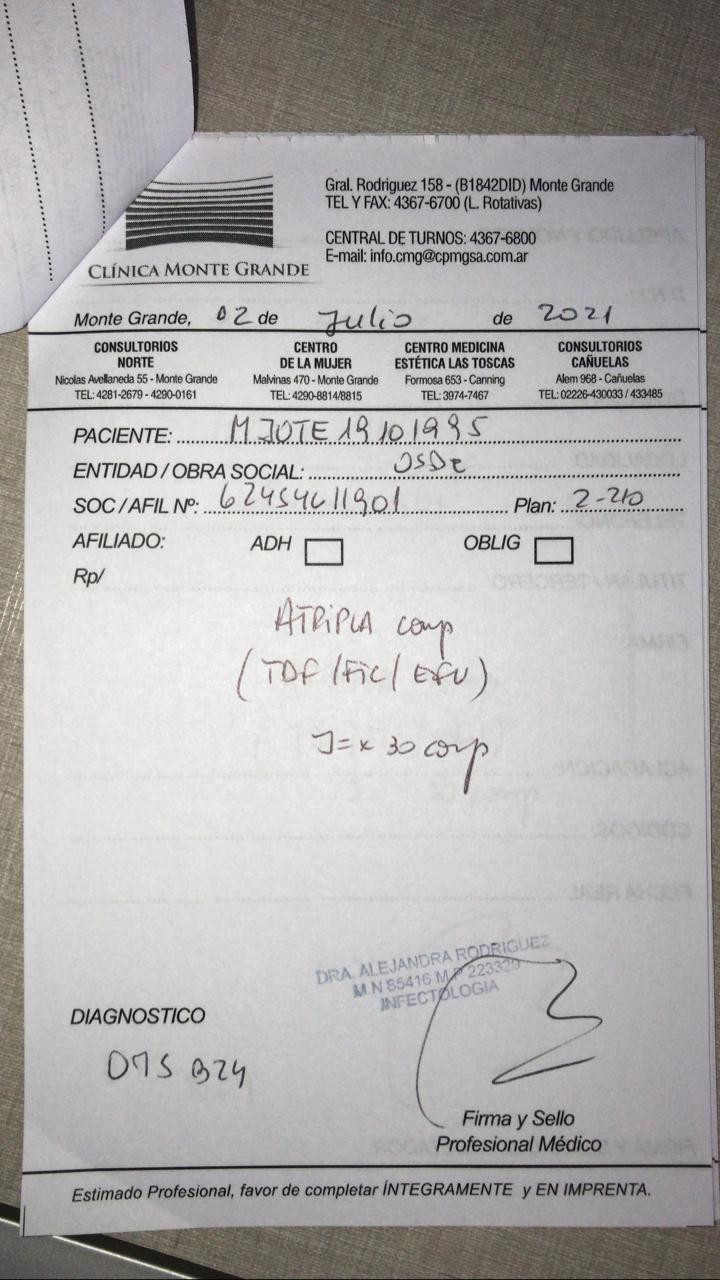 Gral. Rodriguez 158 - (B1842DID) Monte Grande
TEL Y FAX: 4367-6700 (L. Rotativas)
CENTRAL DE TURNOS: 4367-6800
E-mail: info.cmg@cpmgsa.com.ar
CLÍNICA MONTE GRANDE
Monte Grande, 02 de Julio de 2021
CONSULTORIOS NORTE
Nicolas Avellaneda 55 - Monte Grande
TEL: 4281-2679 - 4290-0161
CENTRO DE LA MUJER
Malvinas 470 - Monte Grande
TEL: 4290-8814/8815
CENTRO MEDICINA ESTÉTICA LAS TOSCAS
Formosa 653 - Canning
TEL: 3974-7467
CONSULTORIOS CAÑUELAS
Alem 968 - Cañuelas
TEL: 02226-430033 / 433485
PACIENTE: MJOTE 19101995
ENTIDAD / OBRA SOCIAL: OSDE
SOC / AFIL Nº: 62454611901 Plan: 2-210
AFILIADO: ADH OBLIG
Rp/
ATRIPLA comp
(TDF / FTC / EFV)
x 30 comp
DRA. ALEJANDRA RODRIGUEZ
M.N 85416 M.P 223329
INFECTOLOGIA
DIAGNOSTICO
B24
Firma y Sello
Profesional Médico
Estimado Profesional, favor de completar ÍNTEGRAMENTE y EN IMPRENTA.